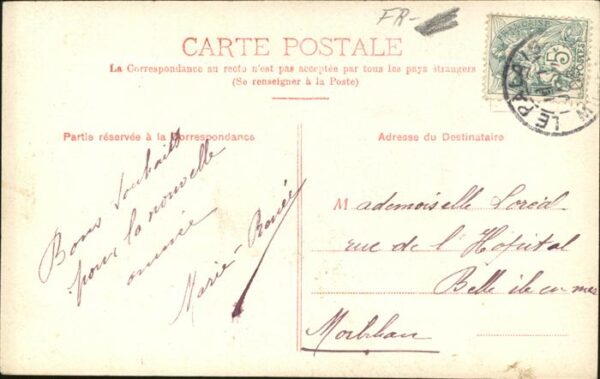 FR-
CARTE POSTALE
La Correspondance au recto n'est pas acceptée par tous les pays étrangers
(Se renseigner à la Poste)
Partie réservée à la Correspondance
Adresse du Destinataire
Bons Souhaits
pour la nouvelle
année
Marie-Renée
Mademoiselle Loréal
rue de l'Hopital
Belle ile en mer
Morbihan
5
LE PAL